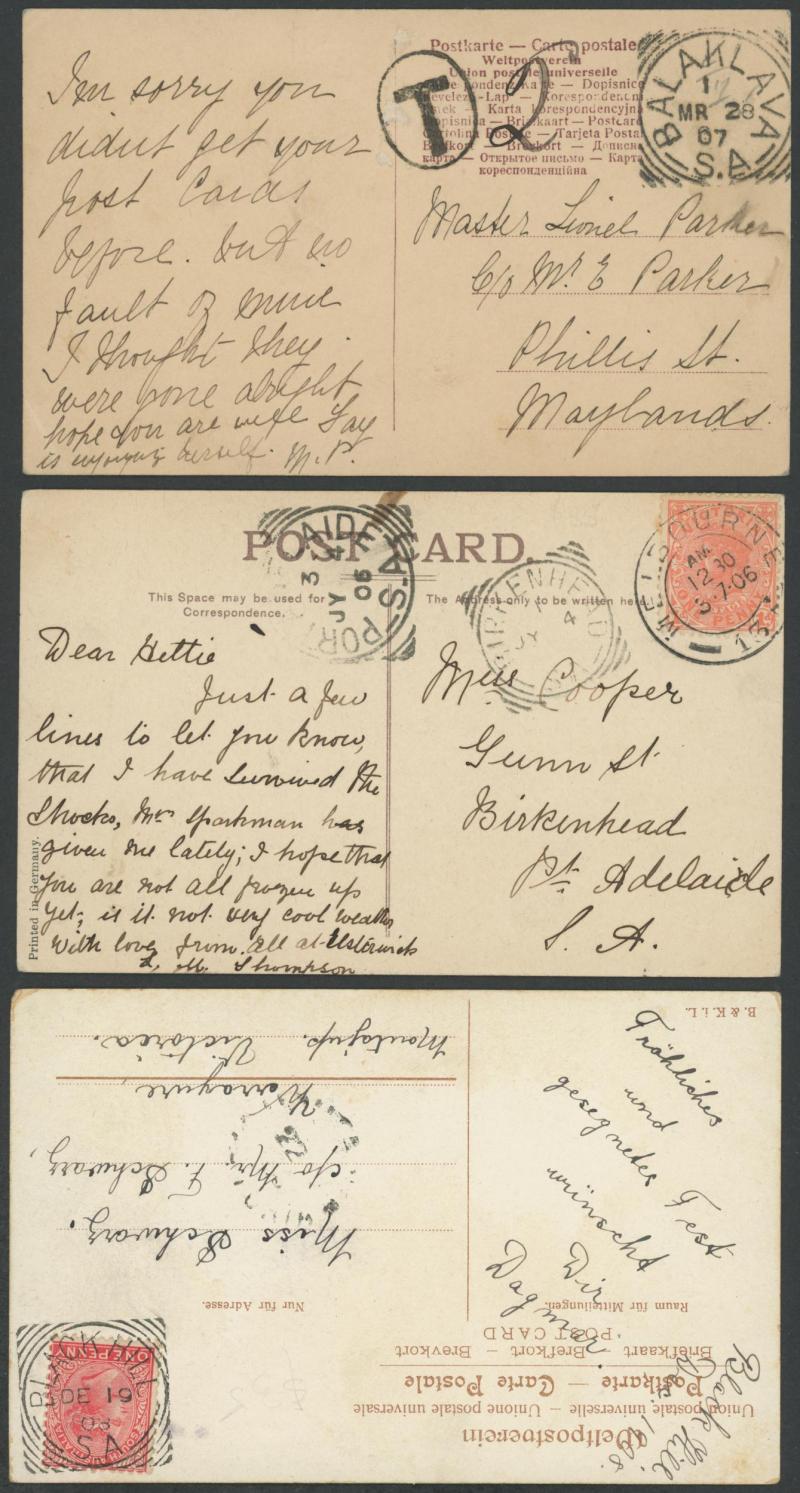 Postkarte — Carte postale
Weltpostverein
Union postale universelle
Dopisnice
Levelez-Lap — Korespondencni
Karta Korespondencyjna
Dopisnica — Briefkaart — Postcard
Cartolina Postale — Tarjeta Postal
Brefkort — Brevkort — Дописна
карта — Открытое письмо — Карта
кореспонденційна
T
2
BALAKLAVA
1
MR 28
07
S.A
I'm sorry you
didnt get your
post Cards
before. but no
fault of mine
I thought they
were gone alright
hope you are well Lay
is enjoying herself. M.P.
Master Lionel Parker
C/o Mr E Parker
Phillis St.
Maylands.
POST CARD.
This Space may be used for
Correspondence.
The Address only to be written here
PORT ADELAIDE
JY 3
4
06
S.A
BIRKENHEAD
JY
4
MELBOURNE
AM
12 30
2.7.06
13
ONE PENNY
Dear Hettie
Just a few
lines to let you know,
that I have survived the
Shocks, Mr Sparkman has
given me lately; I hope that
you are not all frozen up
yet; is it not very cool weather
With love from all at Elsternwick
L. M. Thompson
Printed in Germany.
Miss Cooper
Gunn St.
Birkenhead
Pt. Adelaide
S. A.
Weltpostverein
Union postale universelle — Unione postale universale
Postkarte — Carte Postale
Briefkaart — Brefkort — Brevkort
POST CARD
Raum für Mitteilungen.
Nur für Adresse.
Black Hill
Fröhliches
und
gesegnetes Fest
wünscht
Dir
Dagmar.
B. & K. i. L.
ONE PENNY
BLACK HILL
DE 19
08
S A
Miss Schwarz.
c/o Mr. F. Schwarz,
Warrayure,
Moutajup.
Victoria.